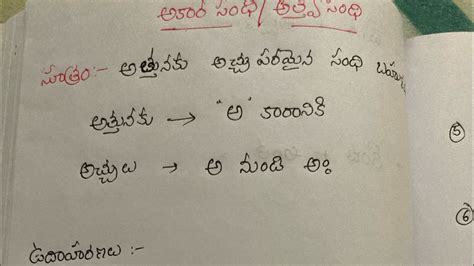 అకార సంధి / అత్వసంధి
సూత్రం:- అత్తునకు అచ్చు పరమైన సంధి
అత్తునకు → "అ" కారానికి
⑤
అచ్చులు → అ నుండి ఔ
⑥
ఉదాహరణలు :-